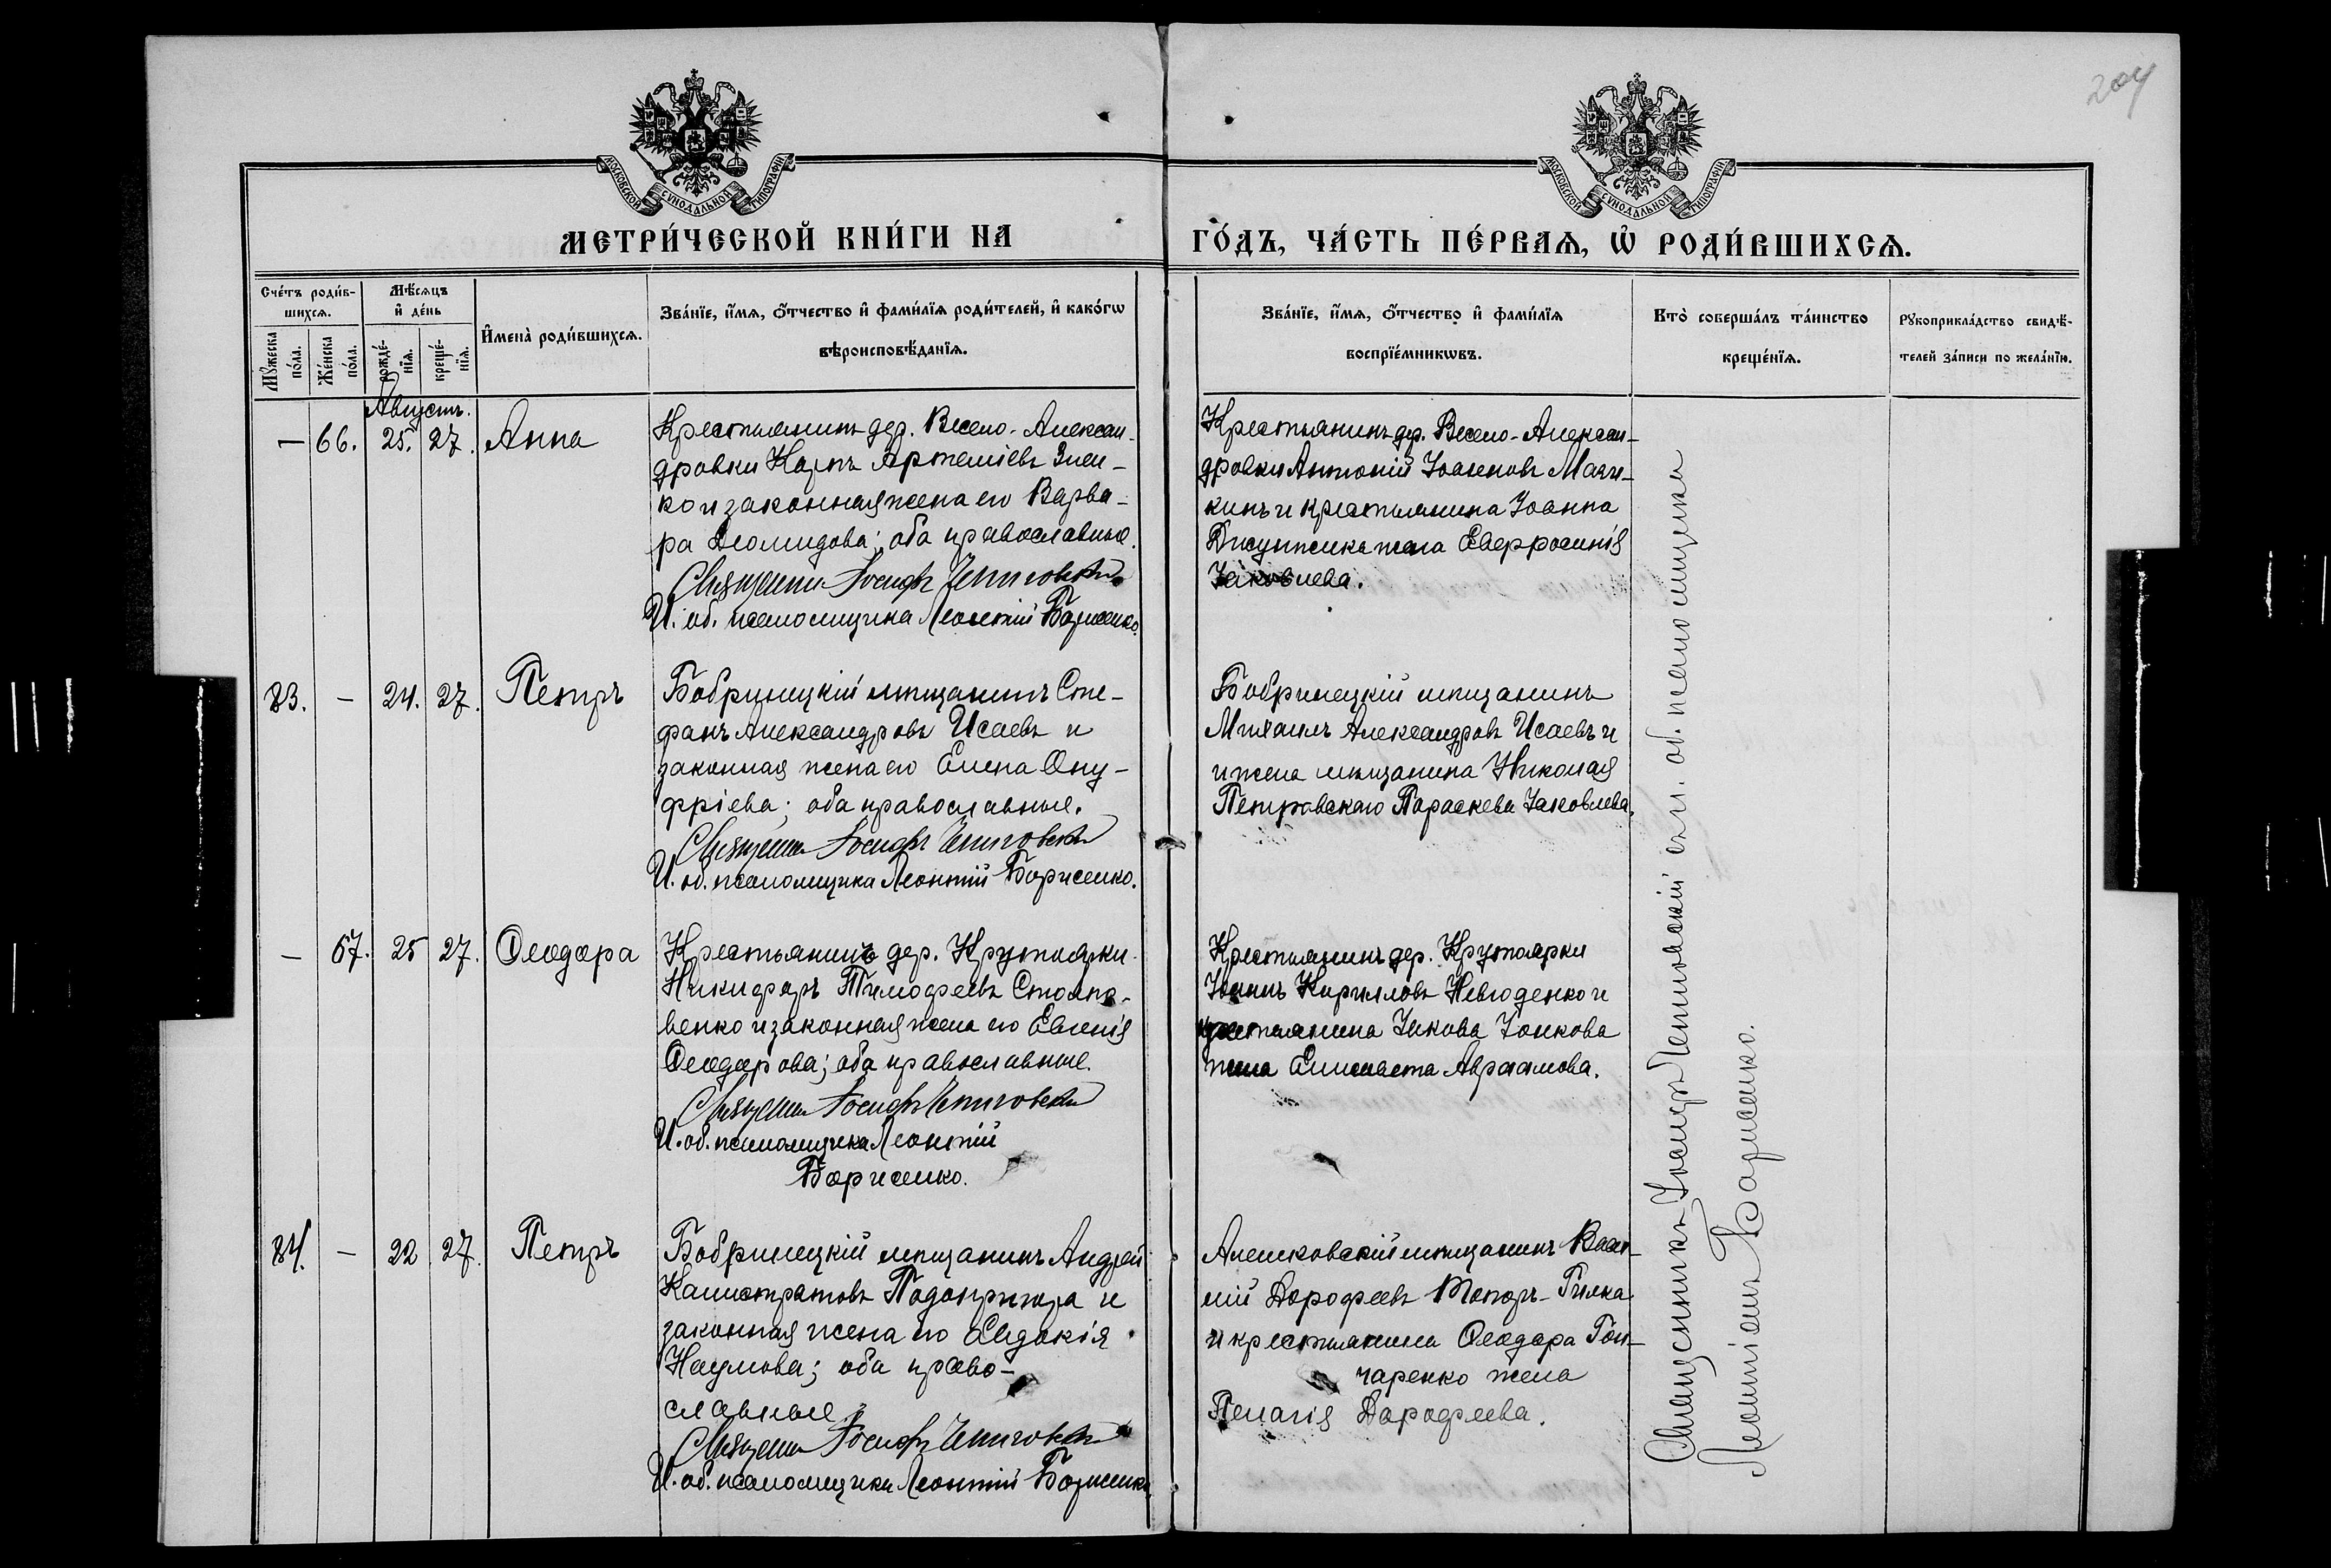 204
МОСКОВСКОЙ СУНОДАЛЬНОЙ ТИПОГРАФІИ
МОСКОВСКОЙ СУНОДАЛЬНОЙ ТИПОГРАФІИ
МЕТРИ́ЧЕСКОЙ КНИ́ГИ НА ГО́ДЪ, ЧА́СТЬ ПЕ́РВАѦ, Ѡ҆ РОДИ́ВШИХСѦ.
Сче́тъ роди́в-
шихсѧ.
Мꙋ́жеска по́ла.
Же́нска по́ла.
Мѣ́сѧцъ
и҆ де́нь
рожде́-
нїѧ.
креще́-
нїѧ.
И҆мена̀ роди́вшихсѧ.
Зва́нїе, и҆́мѧ, ѻ҆́тчество и҆ фами́лїѧ роди́телей, и҆ како́гѡ
вѣроисповѣ́данїѧ.
Зва́нїе, и҆́мѧ, ѻ҆́тчество и҆ фами́лїѧ
воспрїе́мникѡвъ.
Кто̀ соверша́лъ та́инство
креще́нїѧ.
Рꙋкоприкла́дство свидѣ́-
телей за́писи по жела́нїю.
Августъ.
— 66. 25. 27. Анна
Крестьянинъ дер. Весело-Алексан-
дровки Карпъ Артеміевъ
и законная жена его Варва-
ра Деомидова; оба православные.
Священникъ Іосифъ
И. об. псаломщика Леонтій Борисенко.
Крестьянинъ дер. Весело-Алексан-
дровки Антоній Іоанновъ
кинъ и крестьянина Іоанна
жена Евфросинія
Іаковлева.
83. — 24. 27. Петръ
Бобринецкій мѣщанинъ Сте-
фанъ Александровъ Исаевъ и
законная жена его Елена Ону-
фріева; оба православные.
Священникъ Іосифъ
И. об. псаломщика Леонтій Борисенко.
Бобринецкій мѣщанинъ
Михаилъ Александровъ Исаевъ и
и жена мѣщанина Николая
Петровскаго Параскева Іаковлева.
— 67. 25 27. Ѳеодора
Крестьянинъ дер. Крутоярки
Никифоръ Тимофеевъ Стояно-
венко и законная жена его Евгенія
Ѳеодорова; оба православные.
Священникъ Іосифъ
И. об. псаломщика Леонтій
Борисенко.
Крестьянинъ дер. Крутоярки
Іоаннъ Кирилловъ Невгоденко и
крестьянина Іакова
жена Елисавета Авраамова.
84. — 22 27. Петръ
Бобринецкій мѣщанинъ Андрей
Калистратовъ Подопригора и
законная жена его Евдокія
Наумова; оба право-
славные.
Священникъ Іосифъ
И. об. псаломщика Леонтій Борисенко
Алешковскій мѣщанинъ Васи-
лій Дорофеевъ Топоръ-Гилка
и крестьянина Ѳеодора Гон-
чаренко жена
Пелагія Дорофеева.
Священникъ Іосифъ съ и. об. псаломщика
Леонтіемъ Борисенко.